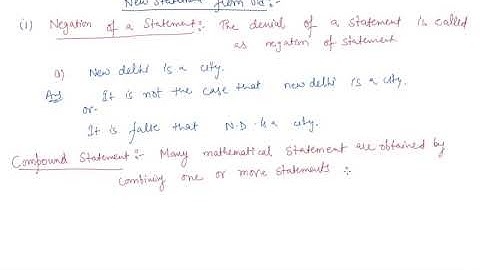 New statement from old:-
(1) Negation of a Statement:- The denial of a statement is called
as negation of statement
New delhi is a city.
It is not the case that new delhi is a city.
or
It is false that N.D. is a city.
Compound Statement:- Many mathematical statement are obtained by
combining one or more statements :-